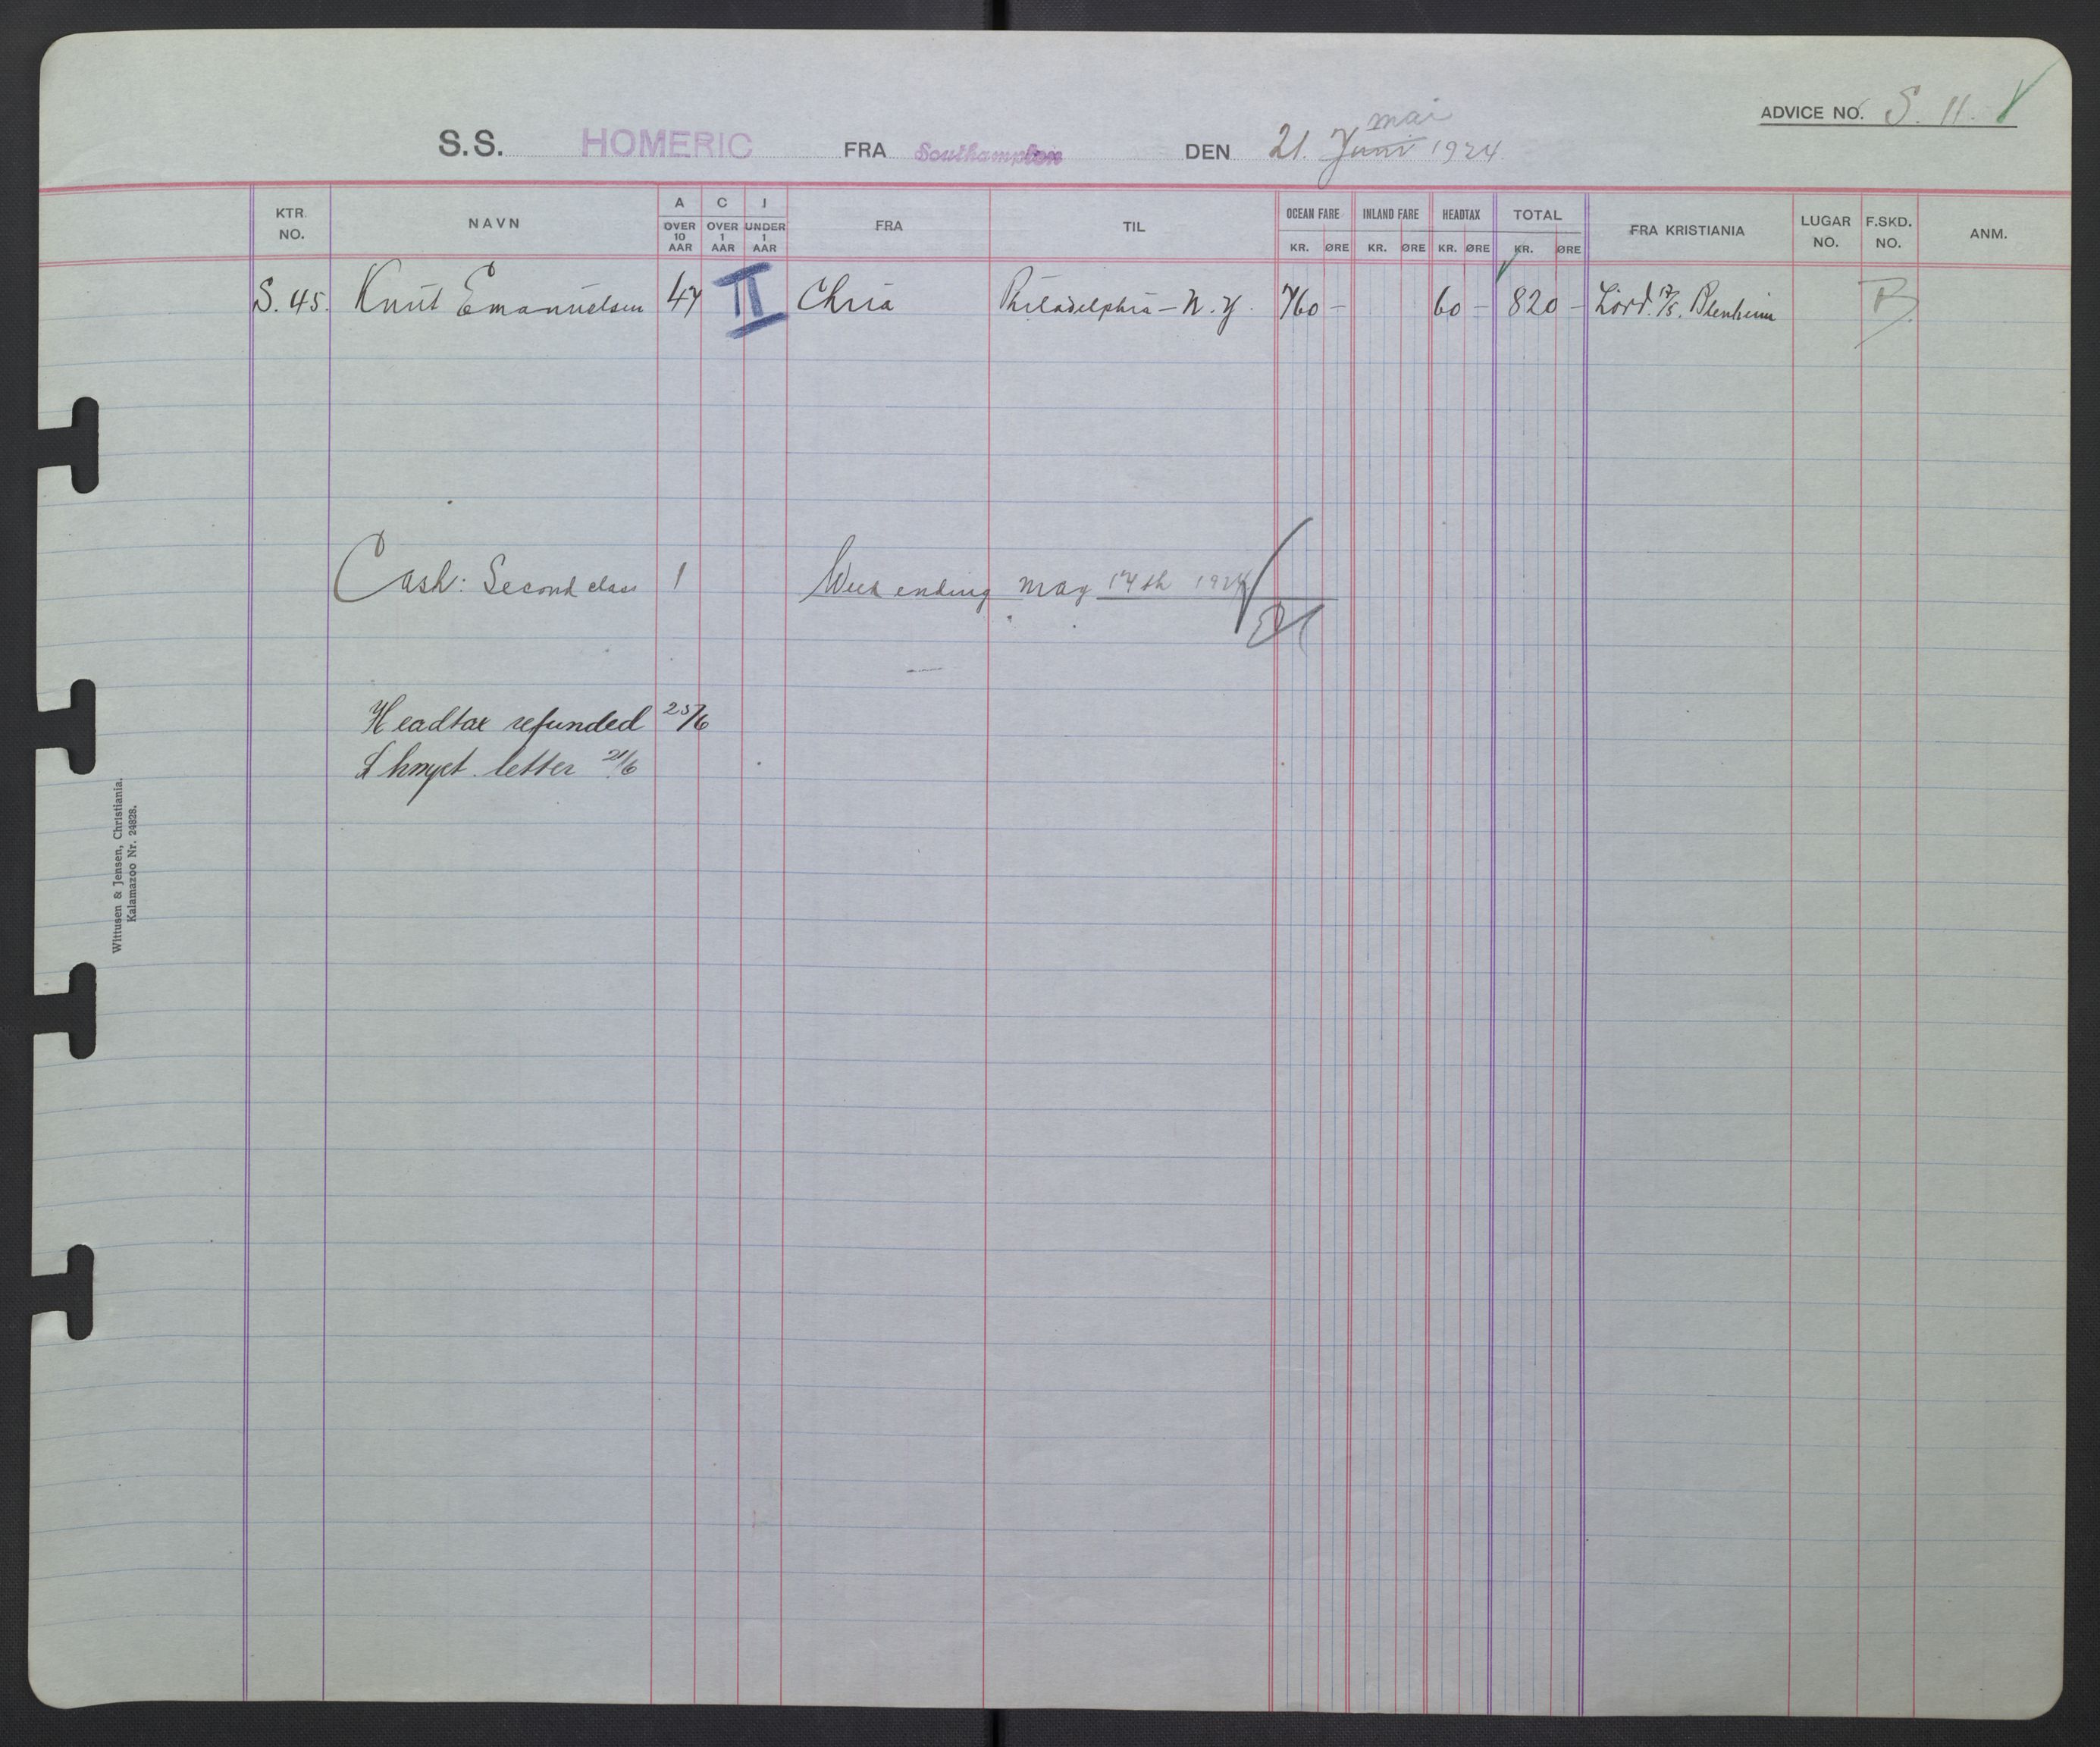 ADVICE NO. S. 11.
S.S. HOMERIC FRA Southampton DEN 21. Juni mai 1924
KTR. NO. NAVN A OVER 10 AAR C OVER 1 AAR J UNDER 1 AAR FRA TIL OCEAN FARE KR. ØRE INLAND FARE KR. ØRE HEADTAX KR. ØRE TOTAL KR. ØRE FRA KRISTIANIA LUGAR NO. F.SKD. NO. ANM.
S. 45. Knut Emanuelsen 47 II Chria Philadelphia - N.Y. 760 - 60 - 820 - Lörd. 17/5. Blenheim B
Cash: Second class 1 Week ending may 17th 1924
Headtax refunded 25/6
letter 21/6
Wittusen & Jensen, Christiania.
Kalamazoo Nr. 24828.